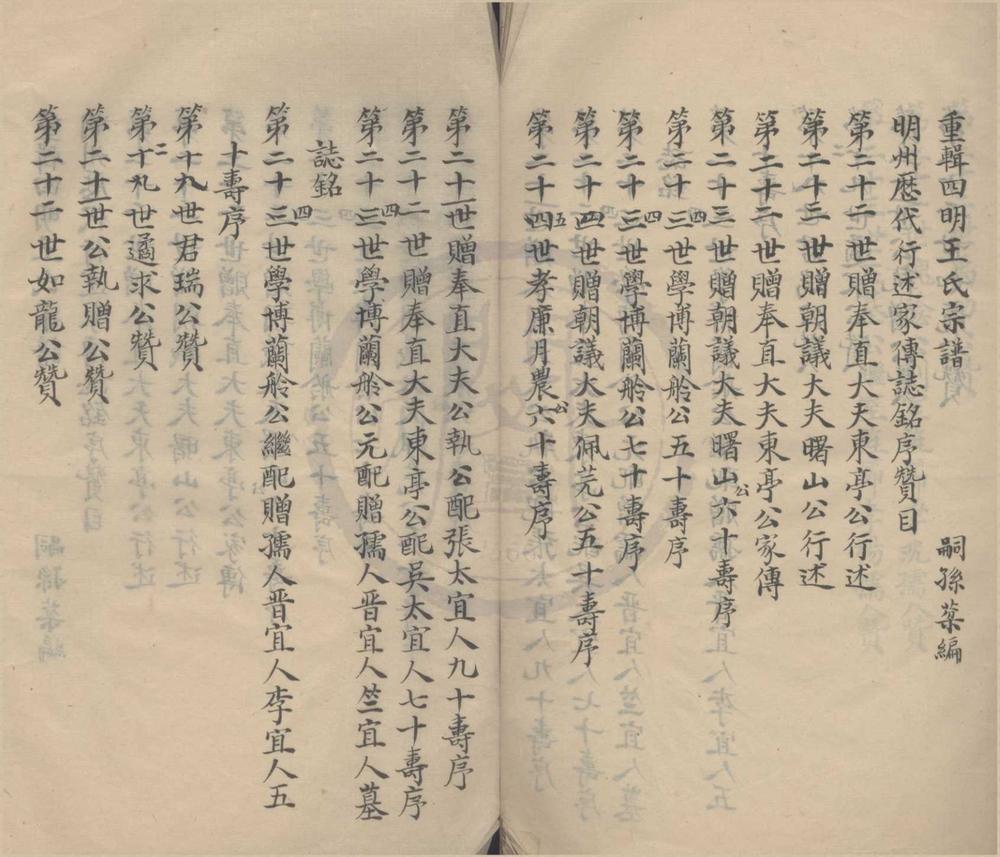 重輯四明王氏宗譜
明州歷代行述家傳誌銘序贊目 嗣孫棻編
第二十二世贈奉直大夫東亭公行述
第二十三世贈朝議大夫曙山公行述
第二十二世贈奉直大夫東亭公家傳
第二十三世贈朝議大夫曙山公六十壽序
第二十三四世學博蘭舲公五十壽序
第二十三四世學博蘭舲公七十壽序
第二十四世贈朝議大夫佩芫公五十壽序
第二十四五世孝廉月農公六十壽序
第二十一世贈奉直大夫公執公配張太宜人九十壽序
第二十二世贈奉直大夫東亭公配吳太宜人七十壽序
第二十三四世學博蘭舲公元配贈孺人晋宜人竺宜人墓
誌銘
第二十三四世學博蘭舲公繼配贈孺人晋宜人李宜人五
十壽序
第十九世君瑞公贊
第二十世遹求公贊
第二十一世公執贈公贊
第二十二世如龍公贊